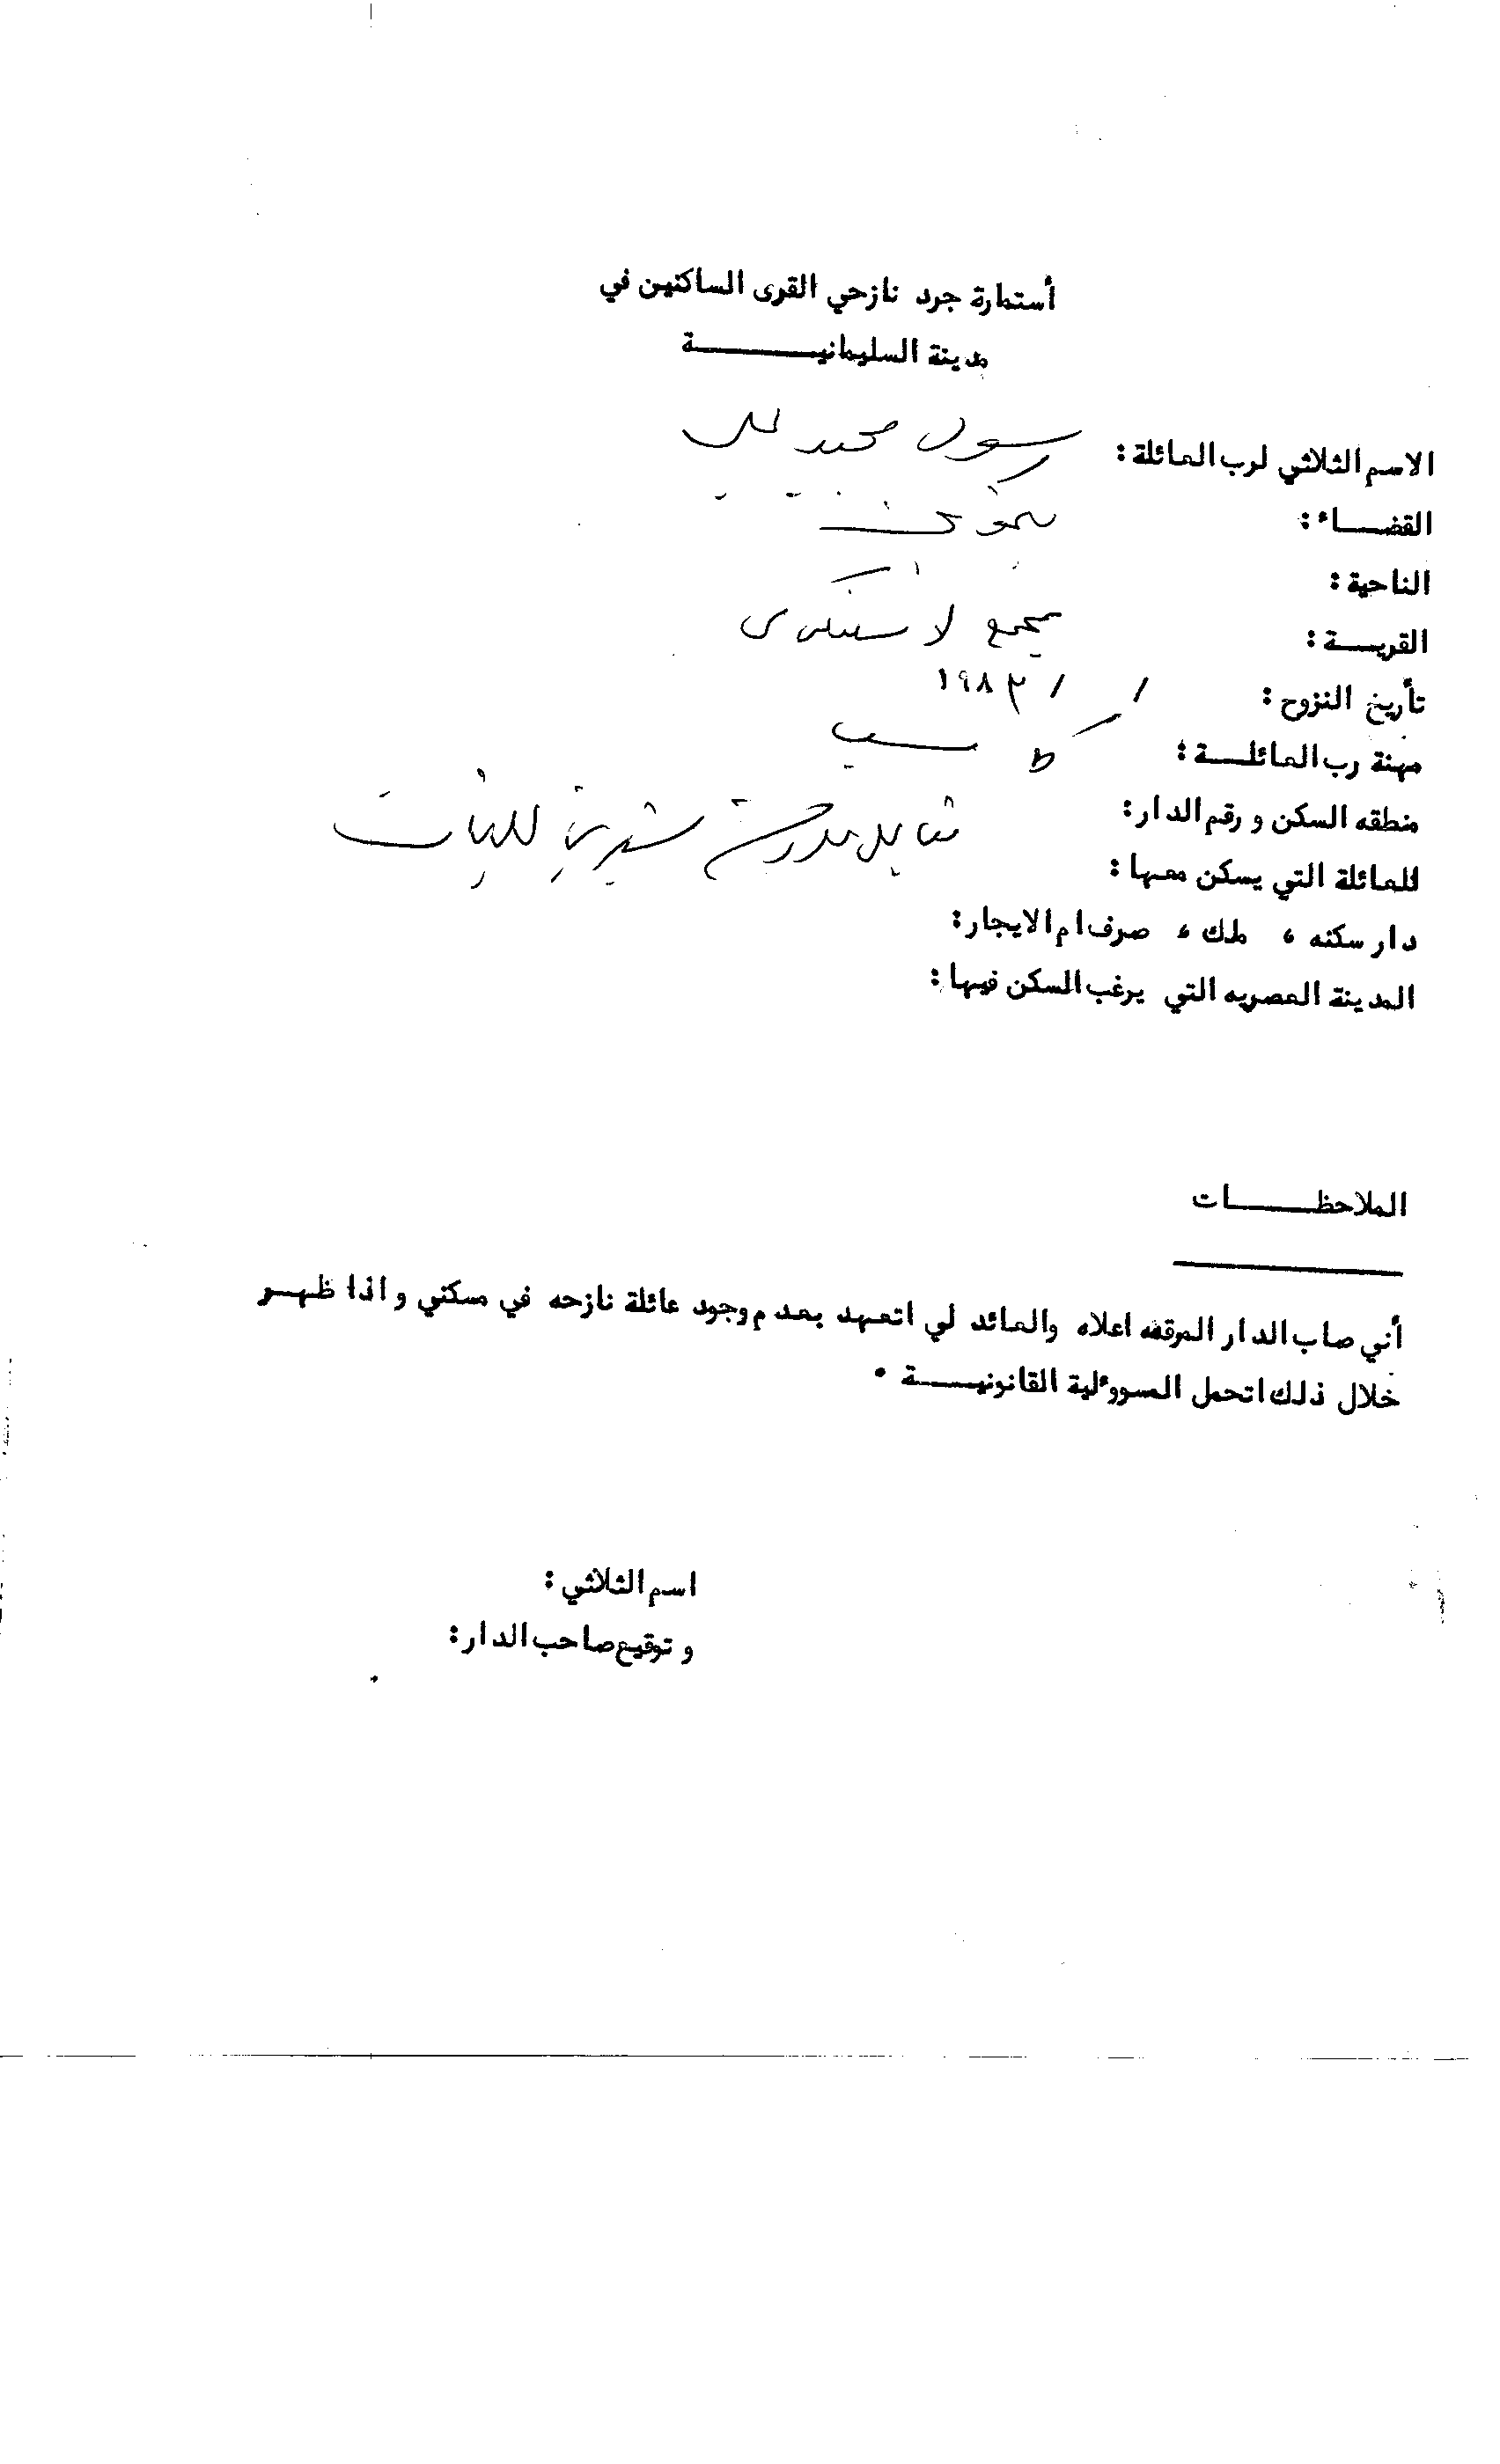 أستمارة جرد نازحي القرى الساكنين في
مدينة السليمانيـــــــة
الاسم الثلاثي لرب العائلة: رسول محمد علي
القضـــاء:
الناحية:
القريـــة: مجمع
تأريخ النزوح: / / ١٩٨٣
مهنة رب العائلـــة: كاسب
منطقه السكن و رقم الدار: مقابل مدرسة شيرين للبنات
للعائلة التي يسكن معها:
دار سكنه ، ملك ، صرف ام الايجار:
المدينة العصريه التي يرغب السكن فيها:
الملاحظــــــات
أني صاب الدار المرقمه اعلاه والعائد لي اتعهد بعدم وجود عائلة نازحه في مسكني و اذا ظهـر
خلال ذلك اتحمل المسوولية القانونيـــــة .
اسم الثلاثي:
و توقيع صاحب الدار: